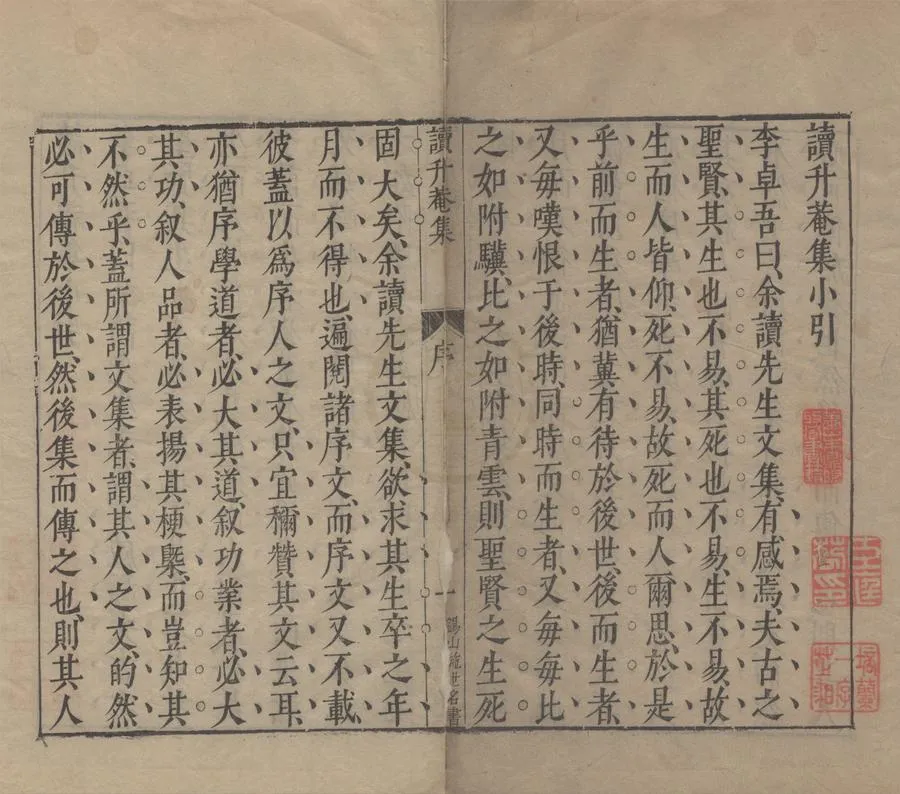 讀升菴集小引
李卓吾曰、余讀先生文集、有感焉、夫古之
聖賢、其生也不易、其死也不易、生不易、故
生而人皆仰、死不易、故死而人爾思、於是
乎前而生者、猶冀有待於後世、後而生者、
又每嘆恨于後時、同時而生者、又每每比
之如附驥、比之如附青雲、則聖賢之生死
讀升菴集
序
一
固大矣、余讀先生文集、欲求其生卒之年
月而不得也、遍閱諸序文、而序文又不載、
彼蓋以爲序人之文、只宜稱贊其文云耳、
亦猶序學道者、必大其道、叙功業者、必大
其功、叙人品者、必表揚其梗槩、而豈知其
不然乎、蓋所謂文集者、謂其人之文、的然
必可傳於後世、然後集而傳之也、則其人